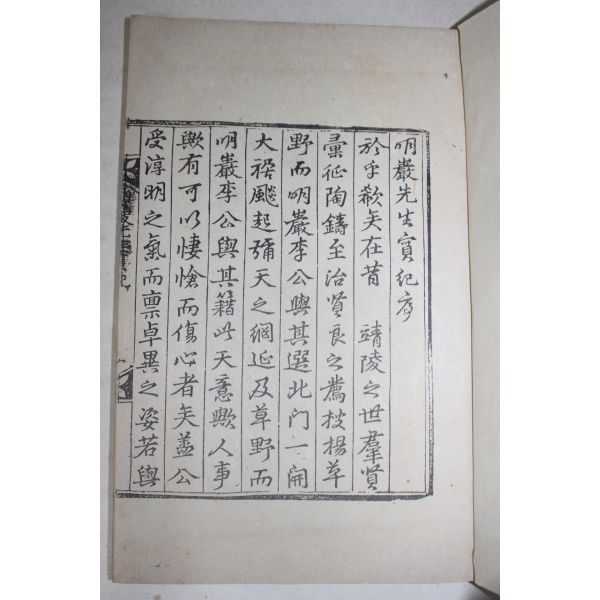 明巖先生實紀序
於乎欷矣在昔　靖陵之世羣賢
彙征陶鑄至治賢良之薦技揚草
野而明巖李公與其選北门一開
大禍颷起彌天之網延及草野而
明巖李公與其籍此天意歟人事
歟有可以悽愴而傷心者矣盖公
受淳明之氣而禀卓異之姿若與